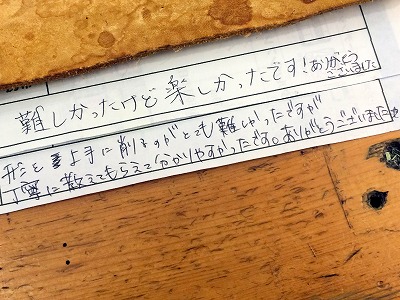 難しかったけど楽しかったです!ありがとう
ございました
形を上手に削るのがとても難しかったですが
丁寧に教えてもらえて分かりやすかったです。ありがとうございました